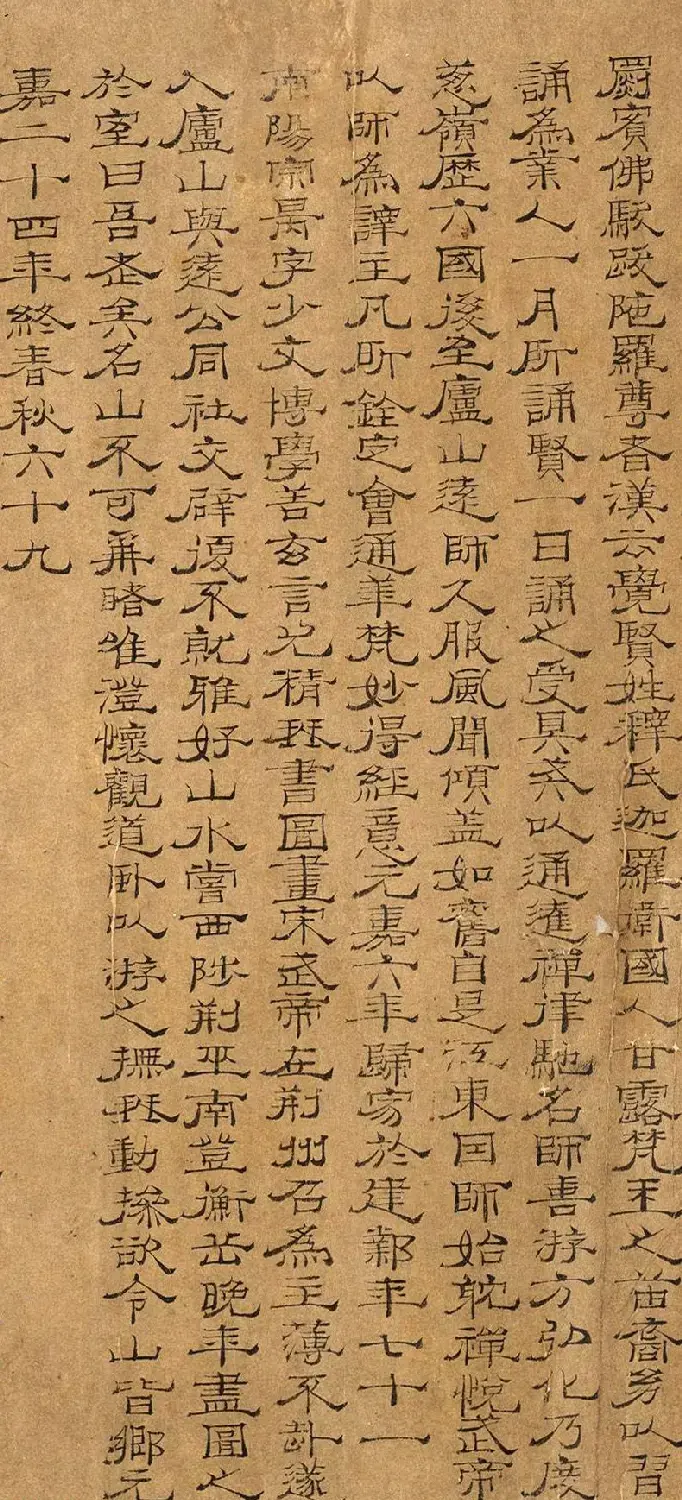 罽賓佛馱跋陁羅尊者漢云覺賢姓釋氏迦羅衛國人甘露梵王之苗裔幼以習
誦為業人一月所誦賢一日誦之受具戒以通達禪律馳名師喜游方弘化乃度
葱嶺歷六國後至廬山遠師久服風聞傾盖如舊自是江東因師始耽禪悅武帝
以師為譯主凡所銓定會通華梵妙得經意元嘉六年歸寂於建鄴年七十一
南陽宗昺字少文博學善玄言尤精琹書圖畫宋武帝在荊州召為主薄不赴遂
入廬山與遠公同社文辟復不就雅好山水嘗西陟荊巫南登衡岳晚年盡圖之
於室曰吾老矣名山不可再睹唯澄懷觀道卧以游之撫琹動操欲令山皆鄉元
嘉二十四年終春秋六十九